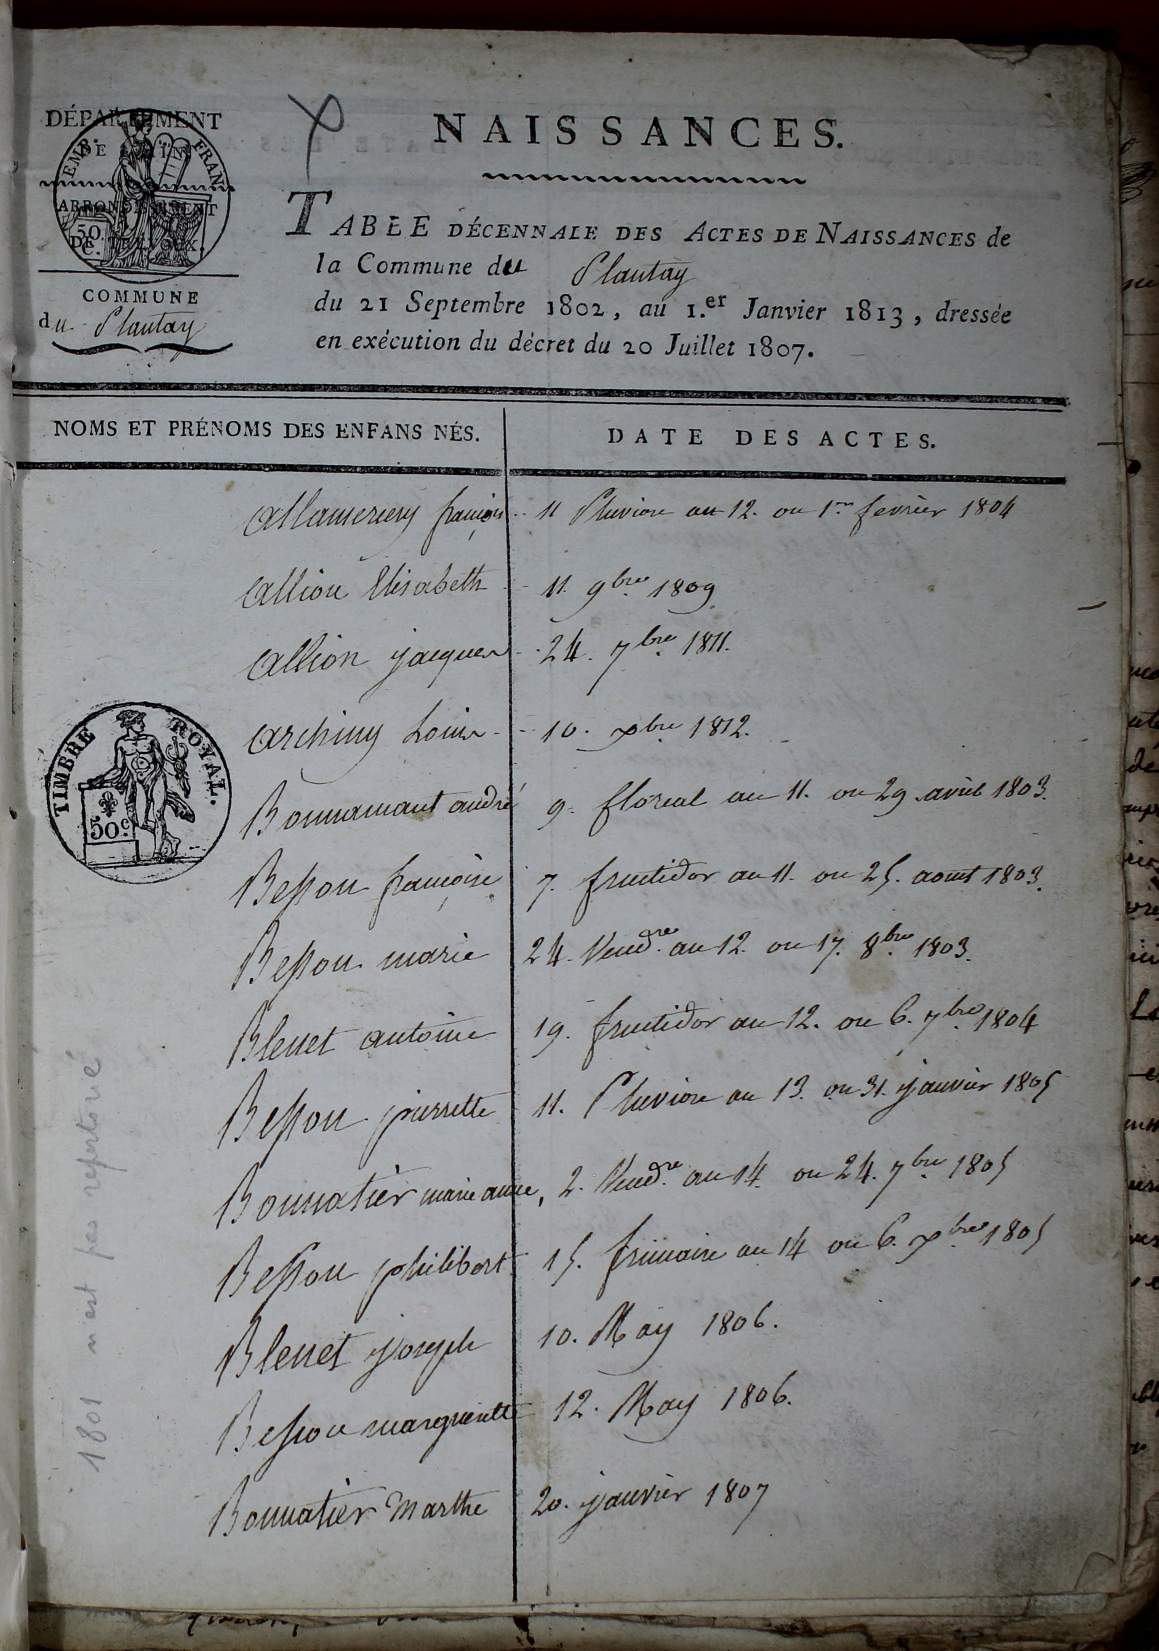 DÉPARTEMENT
DE L'AIN
ARRONDISSEMENT
DE TREVOUX.
EMP. FRAN.
50 C.
COMMUNE
du Plantay
NAISSANCES.
TABLE DÉCENNALE DES ACTES DE NAISSANCES de
la Commune du Plantay
du 21 Septembre 1802, au 1.er Janvier 1813, dressée
en exécution du décret du 20 Juillet 1807.
NOMS ET PRÉNOMS DES ENFANS NÉS. DATE DES ACTES.
françois 11 Pluviose an 12. ou 1er fevrier 1804
Allion Elisabeth 11. 9bre 1809
Allion jacques 24. 7bre 1811.
Archiny Louis 10. xbre 1812.
TIMBRE ROYAL.
50c.
Bonnamant andré 9. floreal an 11. ou 29. avril 1803.
Besson françoise 7. fructidor an 11. ou 25. aout 1803.
Besson marie 24. Vendre. an 12. ou 17. 8bre 1803.
Blenet antoine 19. fructidor an 12. ou 6. 7bre 1804
Besson pierrette 11. Pluviose an 13. ou 31. janvier 1805
Bonnatier marie anne, 2. Vendre. an 14. ou 24. 7bre 1805
Besson philibert 15. frimaire an 14 ou 6. xbre 1805
Blenet joseph 10. May 1806.
Besson marguerite 12. May 1806.
Bonnatier Marthe 20. janvier 1807
1801 n'est pas repertorié